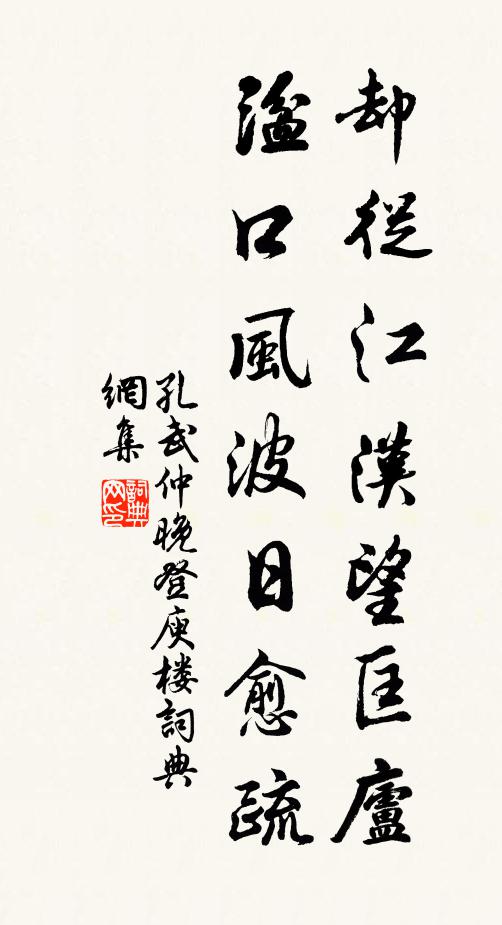 却從江漢望匡廬
湓口風波日愈疏
孔武仲晚登庾楼詞典
網集
詞典
网印